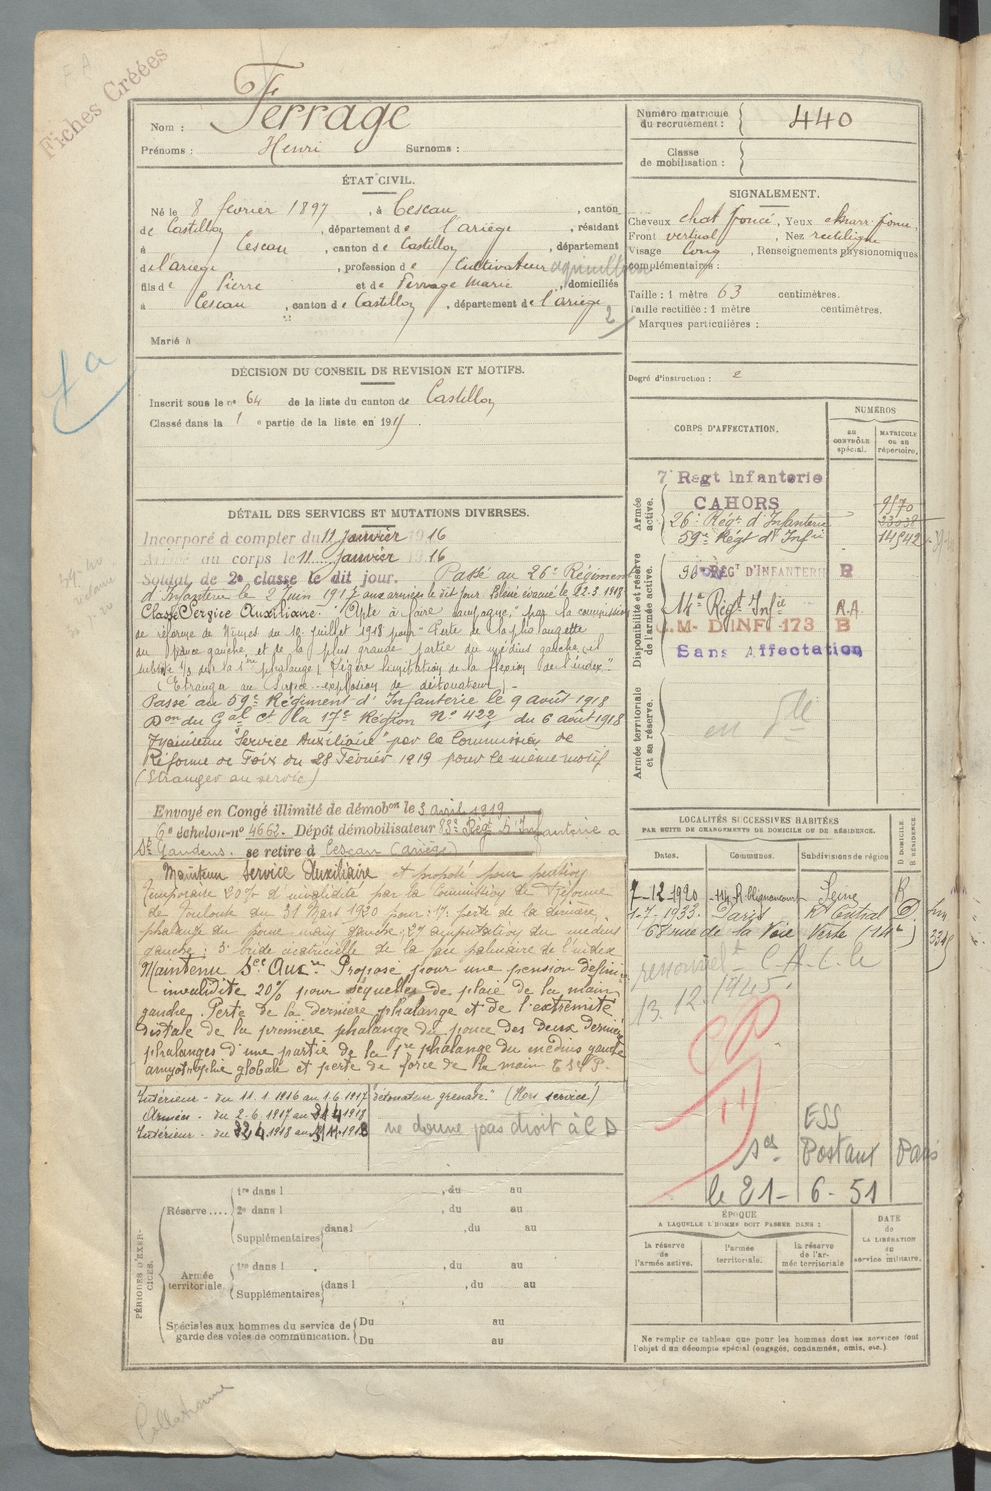 Fiches Créées
Nom : Ferrage
Prénoms : Henri Surnoms :
Numéro matricule du recrutement : 440
Classe de mobilisation :
ÉTAT CIVIL.
Né le 8 février 1897, à Cescau, canton
de Castillon, département de l'ariège, résidant
à Cescau, canton de Castillon, département
de l'ariège, profession de Cultivateur
fils de Pierre et de Ferrage Marie, domiciliés
à Cescau, canton de Castillon, département de l'ariège
2
Marié à
SIGNALEMENT.
Cheveux chat foncé, Yeux
Front vertical, Nez rectiligne
Visage long, Renseignements physionomiques
complémentaires :
Taille : 1 mètre 63 centimètres.
Taille rectifiée : 1 mètre centimètres.
Marques particulières :
Degré d'instruction : 2
DÉCISION DU CONSEIL DE REVISION ET MOTIFS.
Inscrit sous le n° 64 de la liste du canton de Castillon
Classé dans la 1 e partie de la liste en 191
DÉTAIL DES SERVICES ET MUTATIONS DIVERSES.
Incorporé à compter du 11 Janvier 1916
Arrivé au corps le 11 Janvier 1916
Soldat de 2e classe le dit jour. Passé au 26e Régiment
d'Infanterie le 2 Juin 1917 aux armées le dit jour. Blessé évacué le 22.3.1918
Classé Service Auxiliaire "Apte à faire campagne" par la commission
de réforme de Nîmes du 12 Juillet 1918 pour "Perte de la phalangette
du pouce gauche, et de la plus grande partie du médius gauche,
de la 1ère phalange, légère limitation de la flexion de l'index"
(Etranger au Service - explosion de détonateur)
Passé au 59e Régiment d'Infanterie le 9 août 1918
Don du Gal Ct la 17e Région No 422 du 6 août 1918
Maintenu "Service Auxiliaire" par la Commission de
Réforme de Foix du 28 Février 1919 pour le même motif
(Etranger au service)
Envoyé en Congé illimité de démobon le 3 avril 1919
6e échelon n° 4662. Dépôt démobilisateur 83e Régt d'Infanterie à
St Gaudens. se retire à Cescau (Ariège)
Maintenu Service Auxiliaire et proposé pour pension
temporaire 20% d'invalidité par la Commission de Réforme
de Toulouse du 31 Mars 1920 pour : 1° perte de la dernière
phalange du pouce main gauche ; 2° amputation du médius
gauche ; 3° bride cicatricielle de la face palmaire de l'index
Maintenu Sce Auxre Proposé pour une pension
invalidité 20% pour séquelles de plaie de la main
gauche. Perte de la dernière phalange et de l'extrémité
distale de la première phalange du pouce des deux dernières
phalanges d'une partie de la 1re phalange du médius gauche
amyotrophie globale et perte de force de la main
Intérieur - du 11.1.1916 au 1.6.1917
Armées - du 2-6-1917 au
Intérieur - du
détonateur grenade." (Hors service)
ne donne pas droit à C D
CORPS D'AFFECTATION.
NUMÉROS
au CONTRÔLE spécial.
MATRICULE ou au répertoire.
Armée active.
7e Regt Infanterie
CAHORS
26e Régt d'Infanterie
59e Régt d'Infie 14542
Disponibilité et réserve de l'armée active.
RÉGT D'INFANTERIE R
14e Régt Infie R.A
C.M- D'INF. 173 B
Sans Affectation
Armée territoriale et sa réserve.
LOCALITÉS SUCCESSIVES HABITÉES
PAR SUITE DE CHANGEMENTS DE DOMICILE OU DE RÉSIDENCE.
Dates. Communes. Subdivisions de région D DOMICILE. R RÉSIDENCE.
7-12-1920 Seine R
1-7-1933. Paris Rt Central D.
68 rue de la Voie Verte (14e)
13.12.1945.
ESS
Postaux Paris
le 21- 6-51
ÉPOQUE
A LAQUELLE L'HOMME DOIT PASSER DANS :
la réserve de l'armée active.
l'armée territoriale.
la réserve de l'armée territoriale
DATE de LA LIBÉRATION du service militaire.
Ne remplir ce tableau que pour les hommes dont les services font
l'objet d'un décompte spécial (engagés, condamnés, omis, etc.)
PÉRIODES D'EXERCICES.
Réserve....
1re dans l , du au
2e dans l , du au
Supplémentaires dans l , du au
Armée territoriale
1re dans l , du au
Supplémentaires dans l , du au
Spéciales aux hommes du service de
garde des voies de communication.
Du au
Du au
Collationné